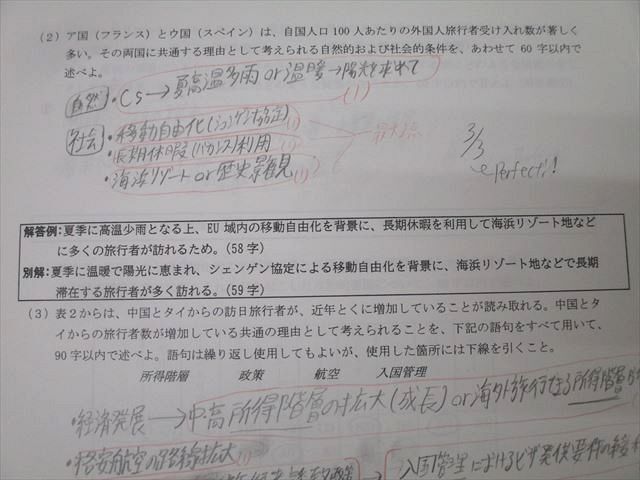 （2）ア国（フランス）とウ国（スペイン）は、自国人口100人あたりの外国人旅行者受け入れ数が著しく
多い。その両国に共通する理由として考えられる自然的および社会的条件を、あわせて60字以内で
述べよ。
自然 ・Cs→夏高温多雨or温暖→陽光を求めて
(1)
社会 ・移動自由化(シェンゲン協定)
(1)
・長期休暇(バカンス)利用
(1)
・海浜リゾートor歴史景観
(1)
3/3
Perfect!!
解答例:夏季に高温少雨となる上、EU域内の移動自由化を背景に、長期休暇を利用して海浜リゾート地など
に多くの旅行者が訪れるため。（58字）
別解:夏季に温暖で陽光に恵まれ、シェンゲン協定による移動自由化を背景に、海浜リゾート地などで長期
滞在する旅行者が多く訪れる。（59字）
（3）表2からは、中国とタイからの訪日旅行者が、近年とくに増加していることが読み取れる。中国とタ
イからの旅行者数が増加している共通の理由として考えられることを、下記の語句をすべて用いて、
90字以内で述べよ。語句は繰り返し使用してもよいが、使用した箇所には下線を引くこと。
所得階層　政策　航空　入国管理
・経済発展→中高所得階層の拡大(成長)or海外旅行する所得階層が
・格安航空の路線拡大
(1)
→入国管理におけるビザ発給要件の緩